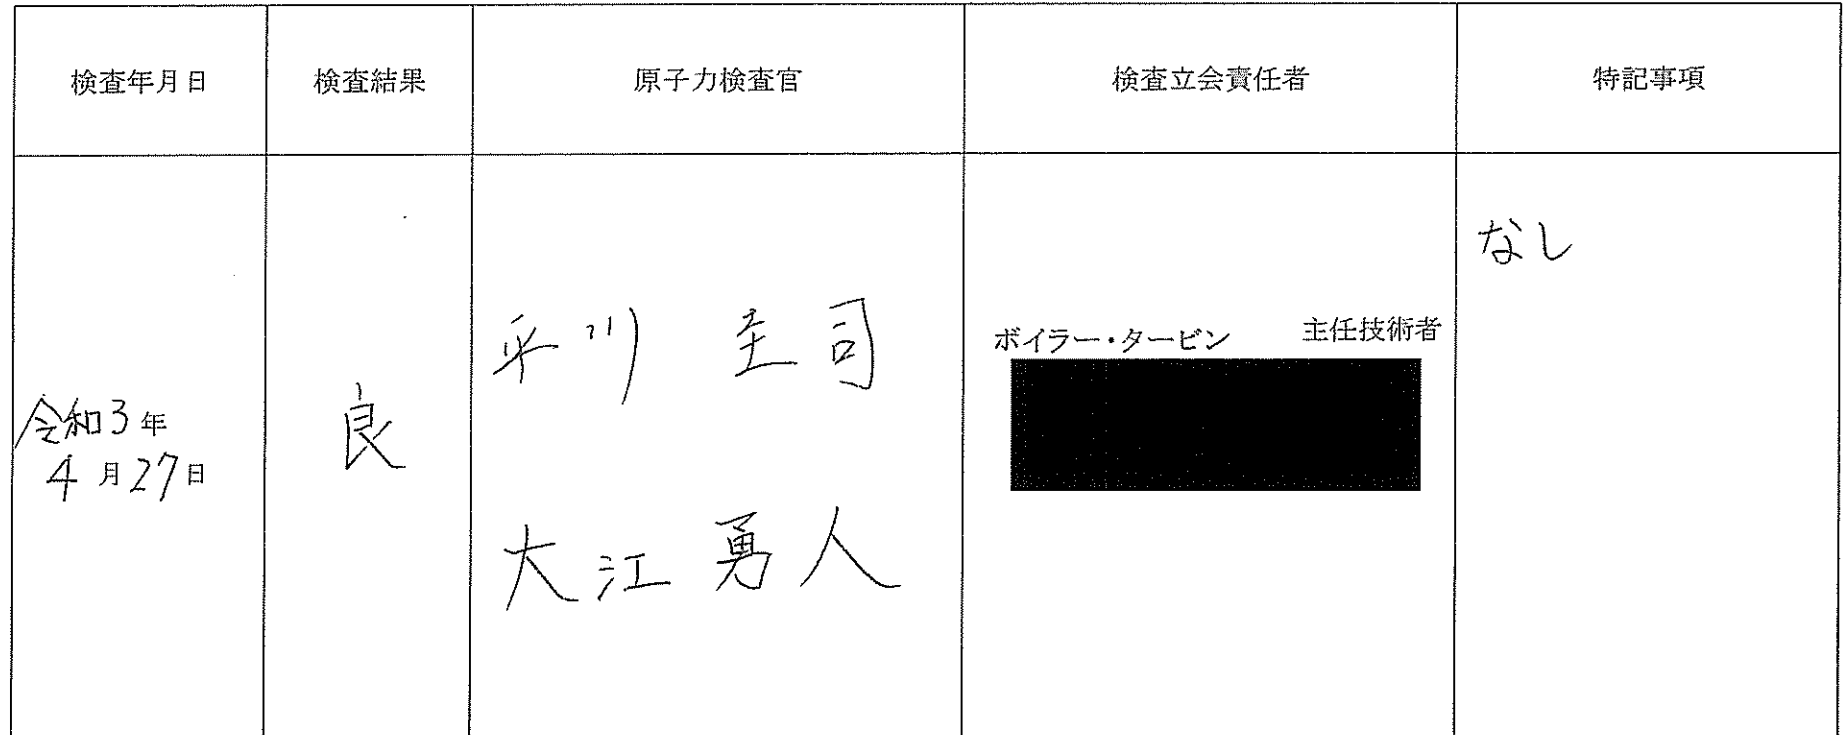 検査年月日 検査結果 原子力検査官 検査立会責任者 特記事項
令和3年
4月27日
良
平川 圭司
大江 勇人
ボイラー・タービン 主任技術者
なし